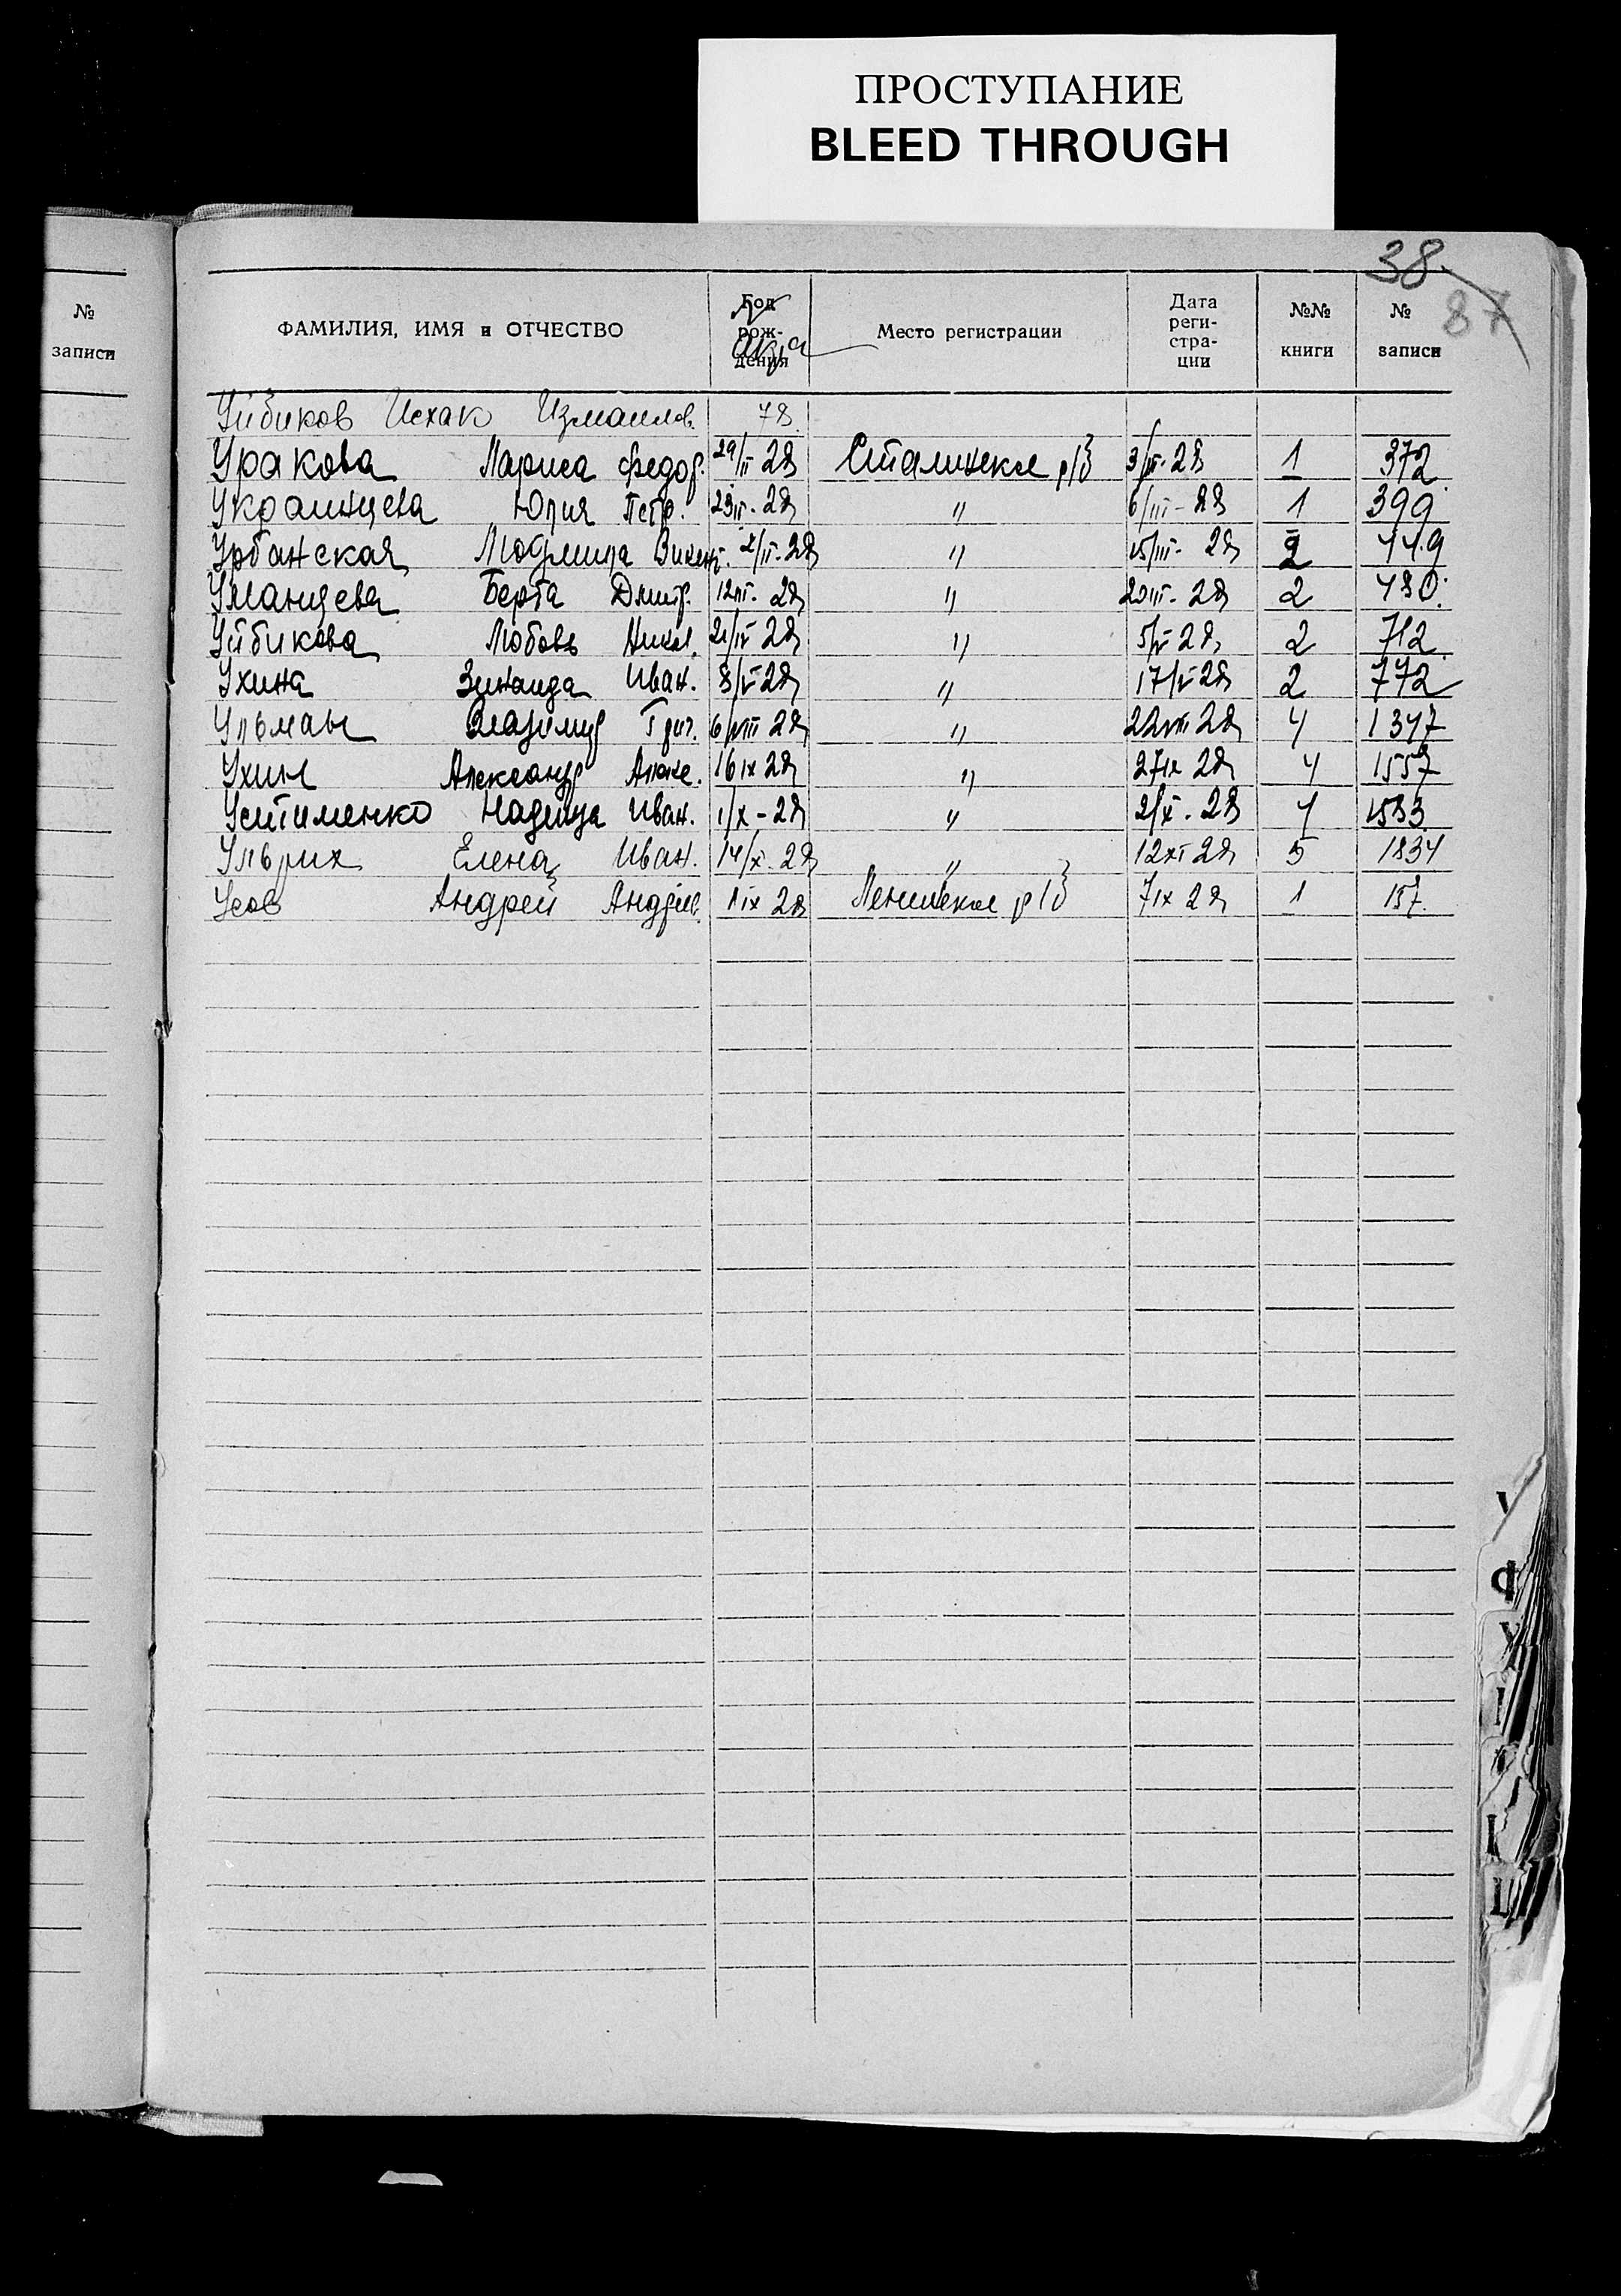 ПРОСТУПАНИЕ
BLEED THROUGH
38
87
№ записи
ФАМИЛИЯ, ИМЯ и ОТЧЕСТВО Год рождения Место регистрации Дата реги-стра-ции №№ книги № записи
Уйбиков Исхак Измаилов. 78.
Уракова Лариса Федор. 29/II 28 Сталинское р/б 3/III-28 1 372
Украинцева Юлия Петр. 23II-28 " 6/III-28 1 399
Урбанская Людмила Викент. 2/II-28 " 15/III-28 2 449
Уманцева Берта Дмитр. 12III-28 " 20III-28 2 480
Уйбикова Любовь Никол. 21/IV 28 " 5/V 28 2 712
Ухина Зинаида Иван. 8/V 28 " 17/V 28 2 772
Ульман Владимир Григ. 6/VIII 28 " 22VIII 28 4 1347
Ухин Александр Алекс. 16IX 28 " 27IX 28 4 1557
Устименко Надежда Иван. 1/X-28 " 2/X-28 4 1583
Ульрих Елена Иван. 14/X-28 " 12XI 28 5 1834
Усов Андрей Андрее. 1IX 28 Ленинское р/б 7IX 28 1 157
У
Ф
Х